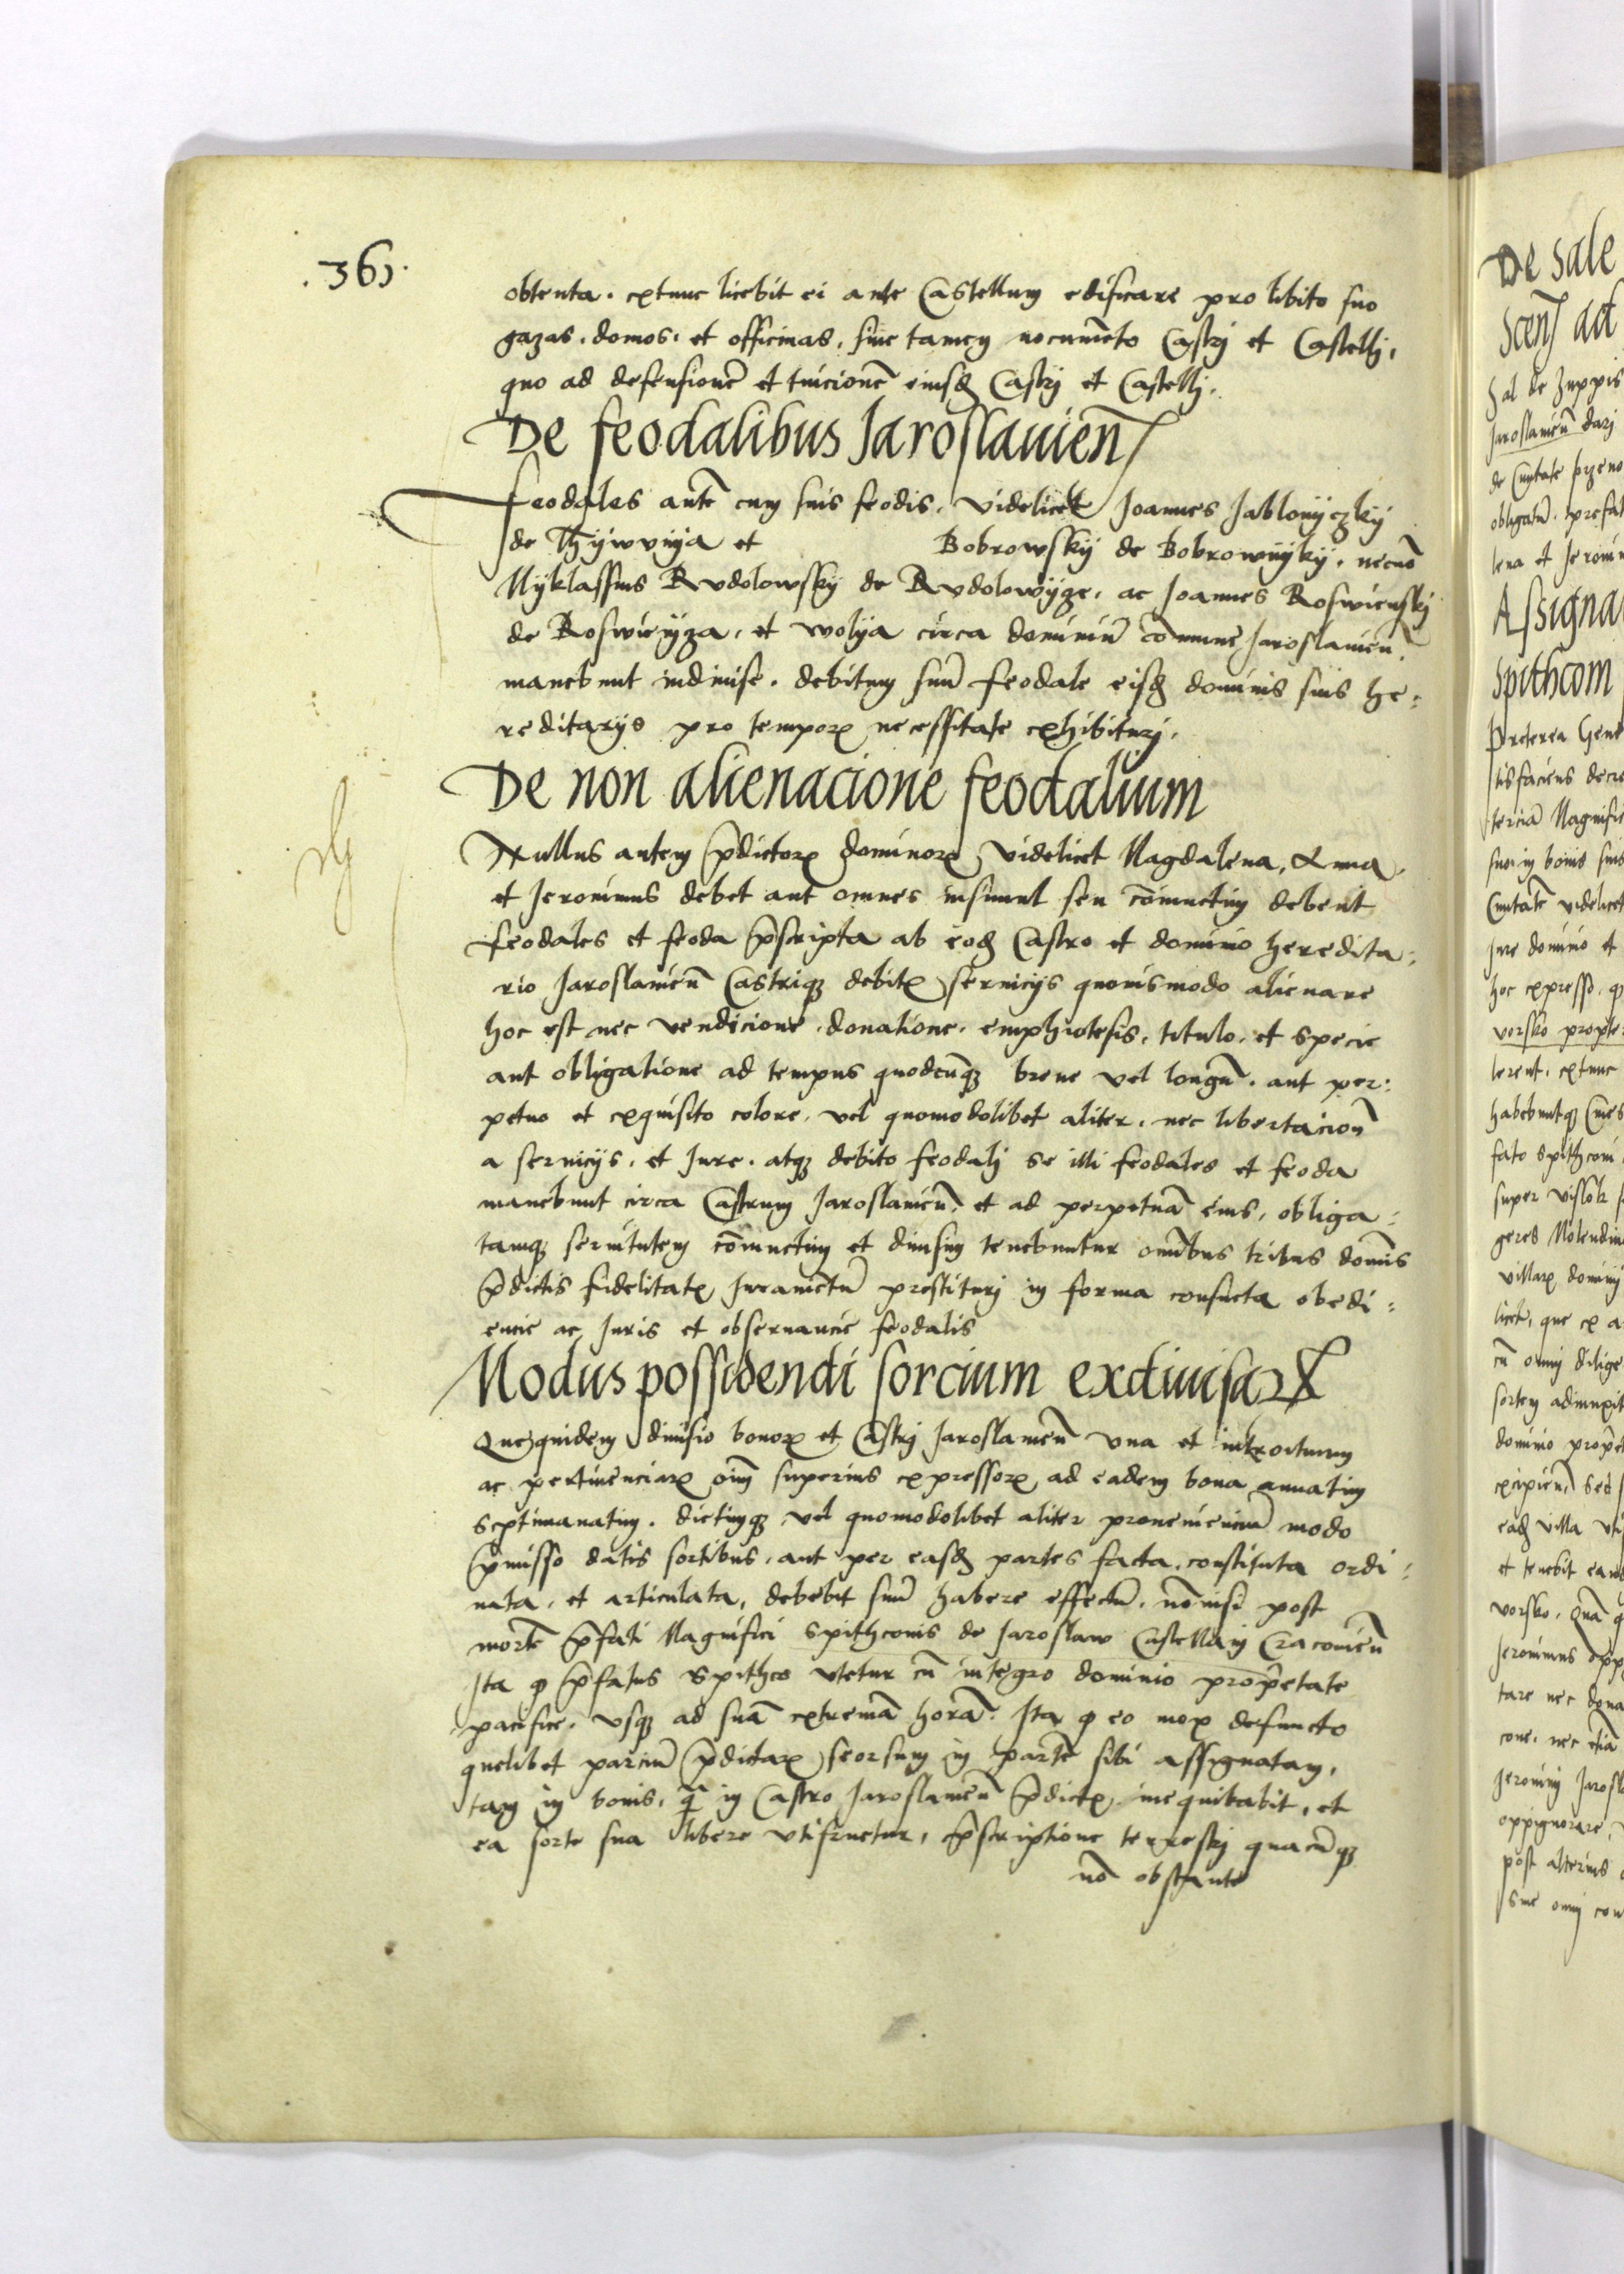 361.
obtenta. extunc licebit ei ante Castellum edificare pro libito suo
gazas, domos, et officinas, sine tamen nocumēto Castrj et Castellj,
quo ad defensionē et tuicionē eiusd Castrj et Castellj.
De feodalibus Jaroslauien
Feodales autē cum suis feodis, videlicet Joannes Jablonyczky
de Thywvnya et Bobrowsky de Bobrownyky, necnō
Myklassius Rvdolowsky de Rvdolowycze, ac Joannes Roswiensky
de Roswienyza, et wolya circa dominiū cōmune Jaroslauień.
manebunt indiuise. debitum suū feodale eisd dominis suis he:
reditarijs pro tempor necessitate exhibiturj.
De non alienacione feodalium
Nullus autem p̄dictor dominor videlicet Magdalena, Anna
et Jeronimus debet aut omnes insimul seu cōiunctim debent
feodales et feoda p̄scripta ab eod Castro et dominio heredita:
rio Jaroslauień Castriq debit seruicijs quouismodo alienare
hoc est nec vendicione, donatione, emphiotesis, titulo, et specie
aut obligatione ad tempus quodcūq breue vel longū. aut per:
petuo et exquisito colore, vel quomodolibet aliter, nec libertacioń
a seruicijs, et Jure, atq debito feodalj se illi feodales et feoda
manebunt circa Castrum Jaroslauień, et ad perpetuā eius, obliga:
tamq seruitutem cōiunctim et diuisim tenebuntur omībus tribus domīs
p̄dictis fidelitat Juramētū prestiturj in forma consueta obedi:
encie ac Juris et obseruancie feodalis
Modus possidendi sorcium exdiuisar
Quequidem diuisio bonor et Castrj Jaroslauień vna et introituum
ac pertinenciar oīm superius expressor ad eadem bona annatim
septimanatim. dietimq vel quomodolibet aliter proueniencium modo
p̄misso datis sortibus, aut per easd partes facta, constituta ordi:
nata, et articulata, debebit suū habere effectū, nōnisi post
mortē p̄fati Magnifici Spithconis de Jaroslaw Castellanj Cracouień
Ita q p̄fatus Spithco vtetur cū integro dominio prop̄etate
pacifice, vsq ad suā extremā horā. Ita q eo mox defuncto
quelibet parciū p̄dictar seorsum in partē sibi assignatam,
tam in bonis, q̄ in Castro Jaroslauień p̄dict inequitabit, et
ea sorte sua libere vtifruetur, p̄scriptione terrestrj quacūq
nō obstante
De sale
Scen act
Sal de Zuppis
Jaroslauień darj
obligatū. prefat
lena et Jeronim
Assigna
Spithcom
Preterea Gene
tisfaciens decre
terciā Magnific
suo in bonis suis
Ciuitatē videlicet
iure dominio et
hoc expresso, q
vorsko propter
lerent, extunc
fato Spithconi
super visslok
geres Molendin
villar dominij
licet, que ex a
cū omnj dilige
sortem adiunxit
dominio propet
excipień, sed
ead villa
et tenebit
vorsko, quā q
Jeronimus opp
tare nec dona
cone, nec etiā
Jeronimj Jarosl
oppignorare,
post alterius
sine omnj con